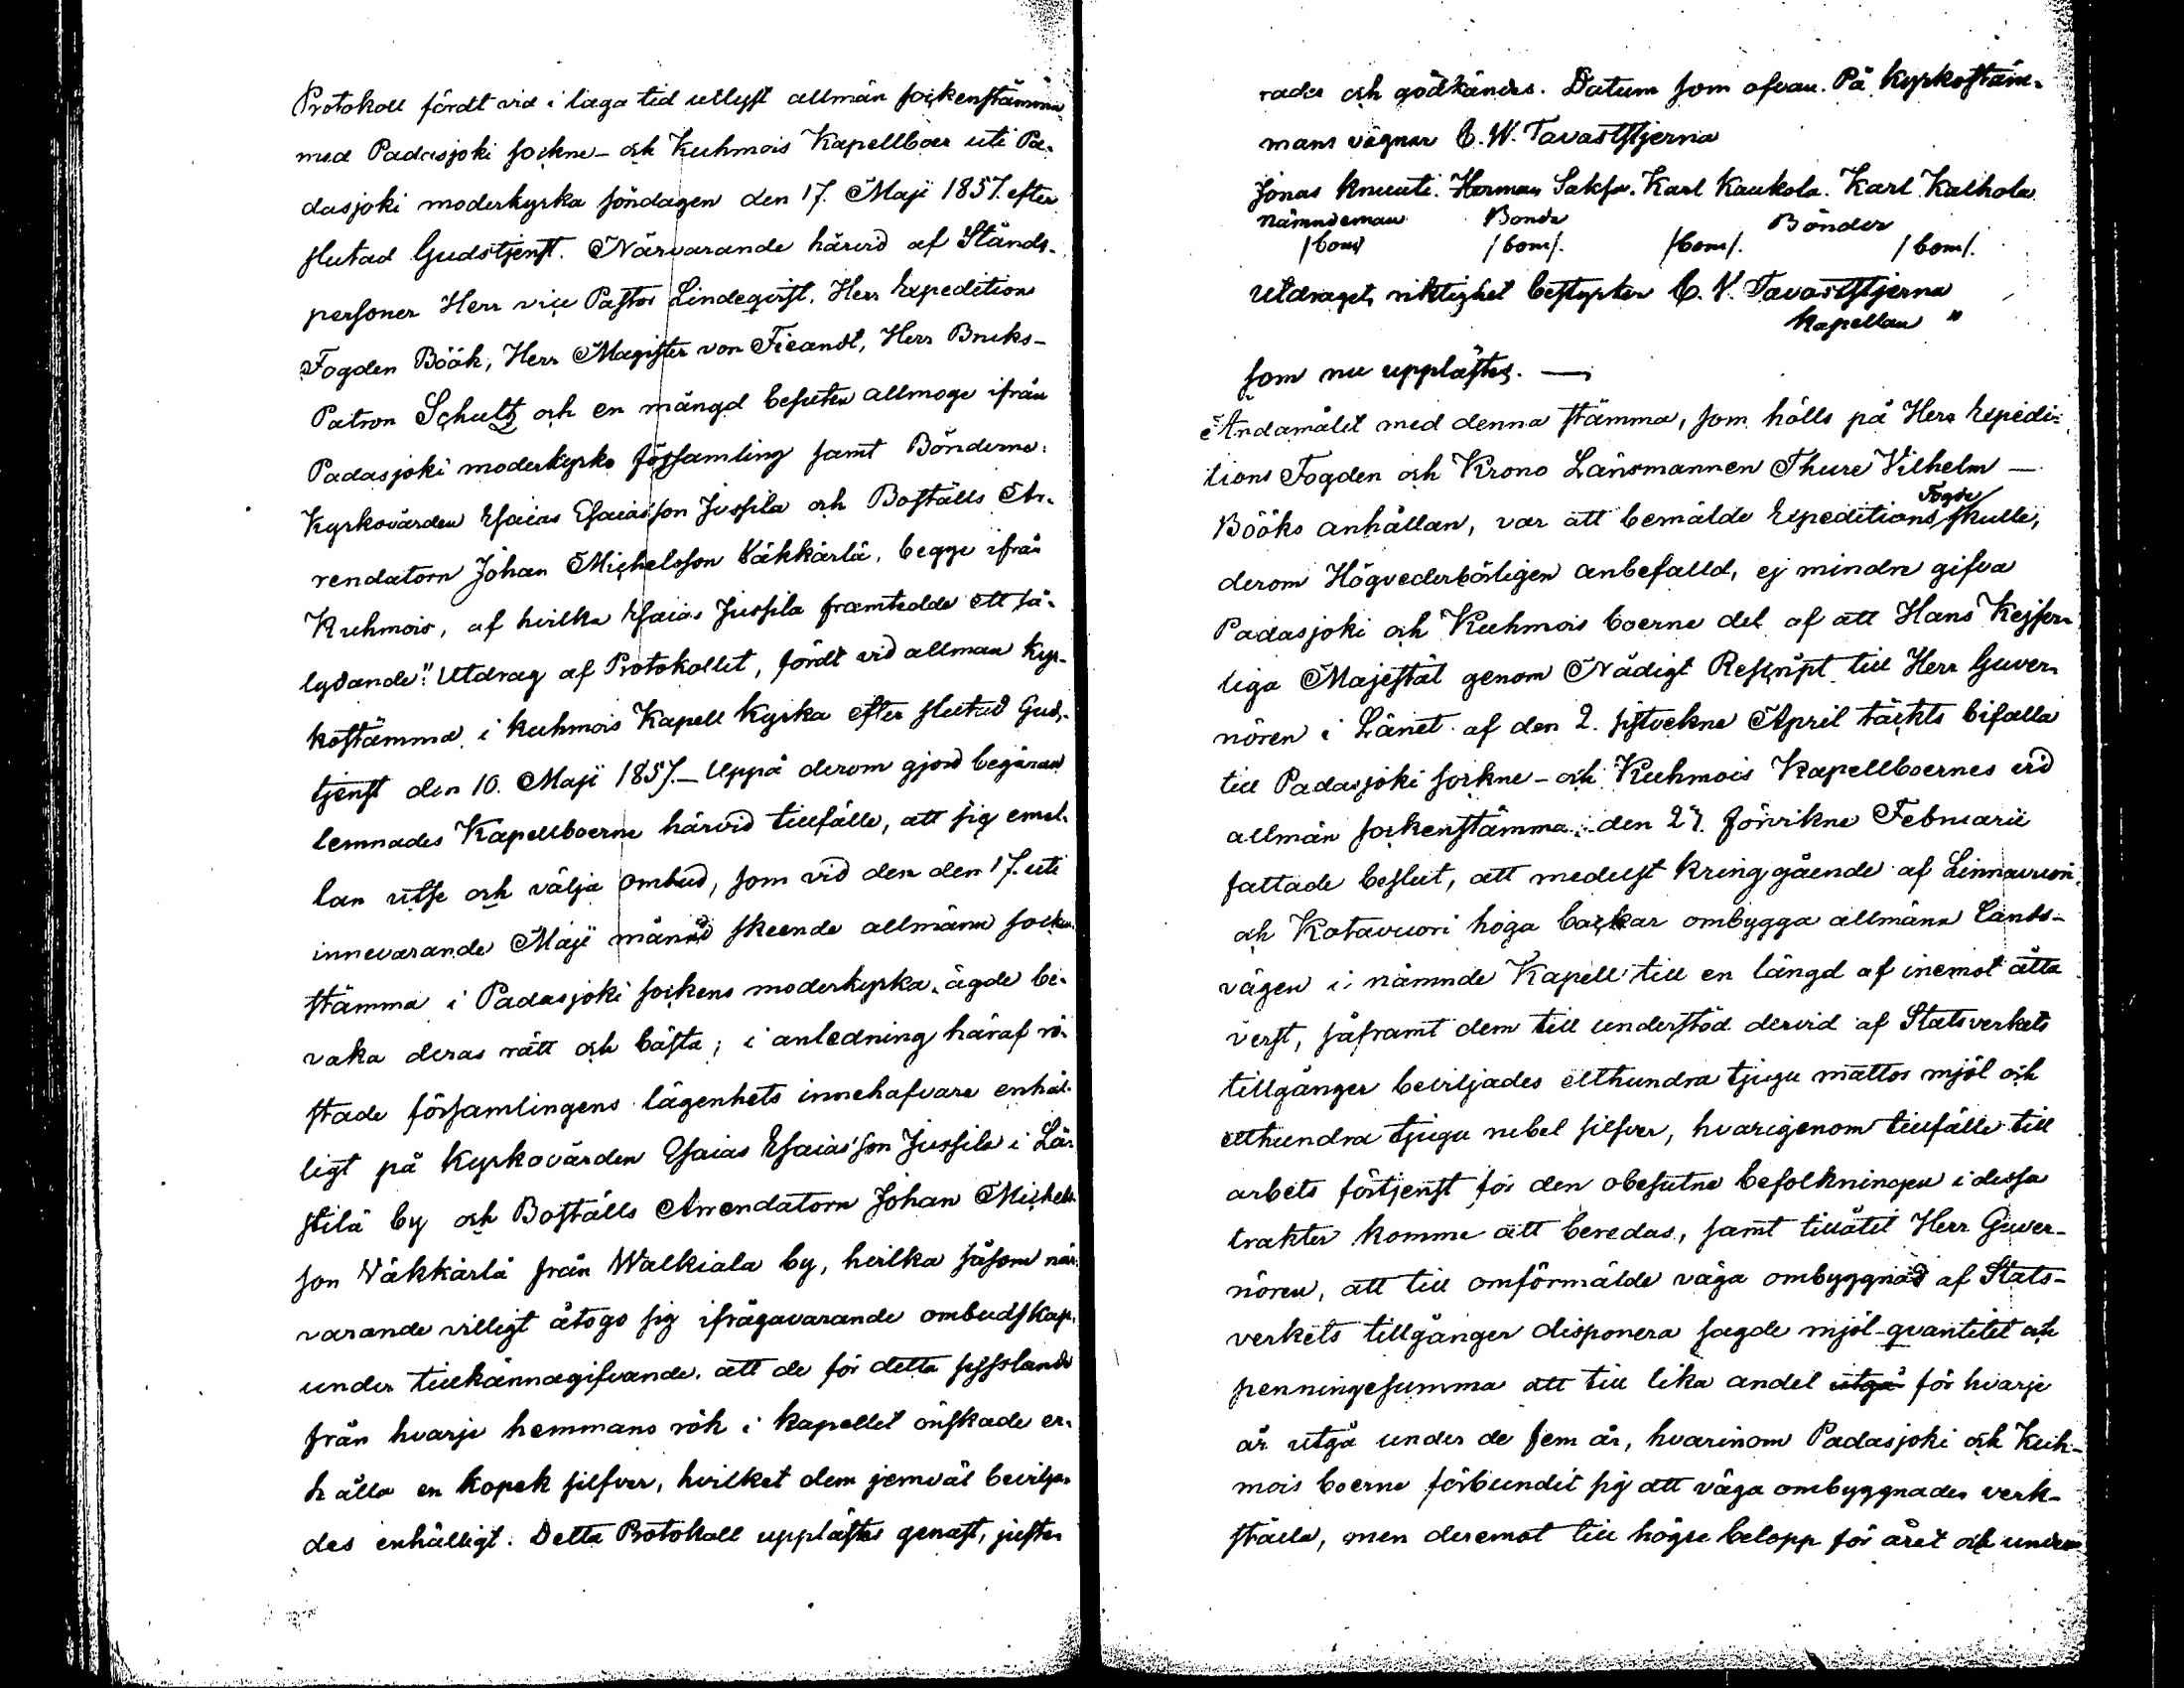 Protokoll fördt vid i laga tid utlyst allmän sockenstämma
med Padasjoki sockne- och Kuhmois Kapellboer uti Pa-
dasjoki moderkyrka söndagen den 17. Maji 1857. efter
slutad Gudstjenst. Närvarande härvid af Stånds-
personer Herr vice Pastor Lindeqvist, Herr Expeditions
Fogden Böök, Herr Magister von Fieandt, Herr Bruks-
Patron Schultz och en mängd besutne allmoge ifrån
Padasjoki moderkyrko församling samt Bönderne:
Kyrkovärden Esaias Esaiasson Jussila och Boställs Ar-
rendatorn Johan Michelsson Väkkärlä, begge ifrån
Kuhmois, af hvilka Esaias Jussila framtedde ett så-
lydande: "Utdrag af Protokollet, fördt vid allman kyr-
kostämma i Kuhmois Kapell kyrka efter slutad Guds-
tjenst den 10. Maji 1857. – Uppå derom gjord begäran
lemnades Kapellboerne härvid tillfälle, att sig emel-
lan utse och välja ombud, som vid den den 17. uti
innevarande Maji månad skeende allmänn socken-
stämma i Padasjoki sockens moderkyrka ägde be-
vaka deras rätt och bästa; i anledning häraf rö-
stade församlingens lägenhets innehafvare enhäl-
ligt på kyrkovärden Esaias Esaiasson Jussila i Lä-
stilä by och Boställs Arrendatorn Johan Michels-
son Väkkärlä från Walkiala by, hvilka såsom när-
varande villigt åtogo sig ifrågavarande ombudskap,
under tillkännagifvande, att de för detta sysslande
från hvarje hemmans rök i kapellet önskade er-
hålla en kopek silfver, hvilket dem jemväl bevilja-
des enhälligt. Detta Protokoll upplästes genast, juste-
rades och godkändes. Datum som ofvan. På kyrkostäm-
mans vägnar C. W. Tavaststjerna
Jonas Knuuti. Herman Saksa. Karl Kaukola. Karl Kalhola
Nämndeman Bonde Bönder
/bom/ /bom/. /bom/. /bom/.
Utdragets riktighet bestyrker C. W. Tavaststjerna
Kapellan "
som nu upplästes. —
Ändamålet med denna stämma, som hölls på Herr Expedi-
tions Fogden och Krono Länsmannen Thure Vilhelm —
Bööks anhållan, var att bemälde Expeditions Fogde skulle,
derom Högvederbörligen anbefalld, ej mindre gifva
Padasjoki och Kuhmois boerne del af att Hans Kejser-
liga Majestät genom Nådigt Reskript till Herr Guver-
nören i Länet af den 2. sistvekne April täckts bifalla
till Padasjoki sockne- och Kuhmois Kapellboernes vid
allmän sockenstämma den 27. förvikne Februarii
fattade beslut, att medelst kringgående af Linnavuori
och Katavuori höga backar ombygga allmänn lands-
vägen i nämnde Kapell till en längd af inemot åtta
verst, såframt dem till understöd dervid af Statsverkets
tillgånger beviljades etthundra tjugu mattor mjöl och
etthundra tjugu rubel silfver, hvarigenom tillfälle till
arbets förtjenst för den obesutne befolkningen i dessa
trakter komme att beredas, samt tillåtit Herr Guver-
nören, att till omförmälde väga ombyggnad af Stats-
verkets tillgånger disponera sagde mjöl-qvantitet och
penningesumma att till lika andel utgå för hvarje
år utgå under de fem år, hvarinom Padasjoki och Kuh-
mois boerne förbundit sig att väga ombyggnaden verk-
ställa, men deremot till högre belopp för året och